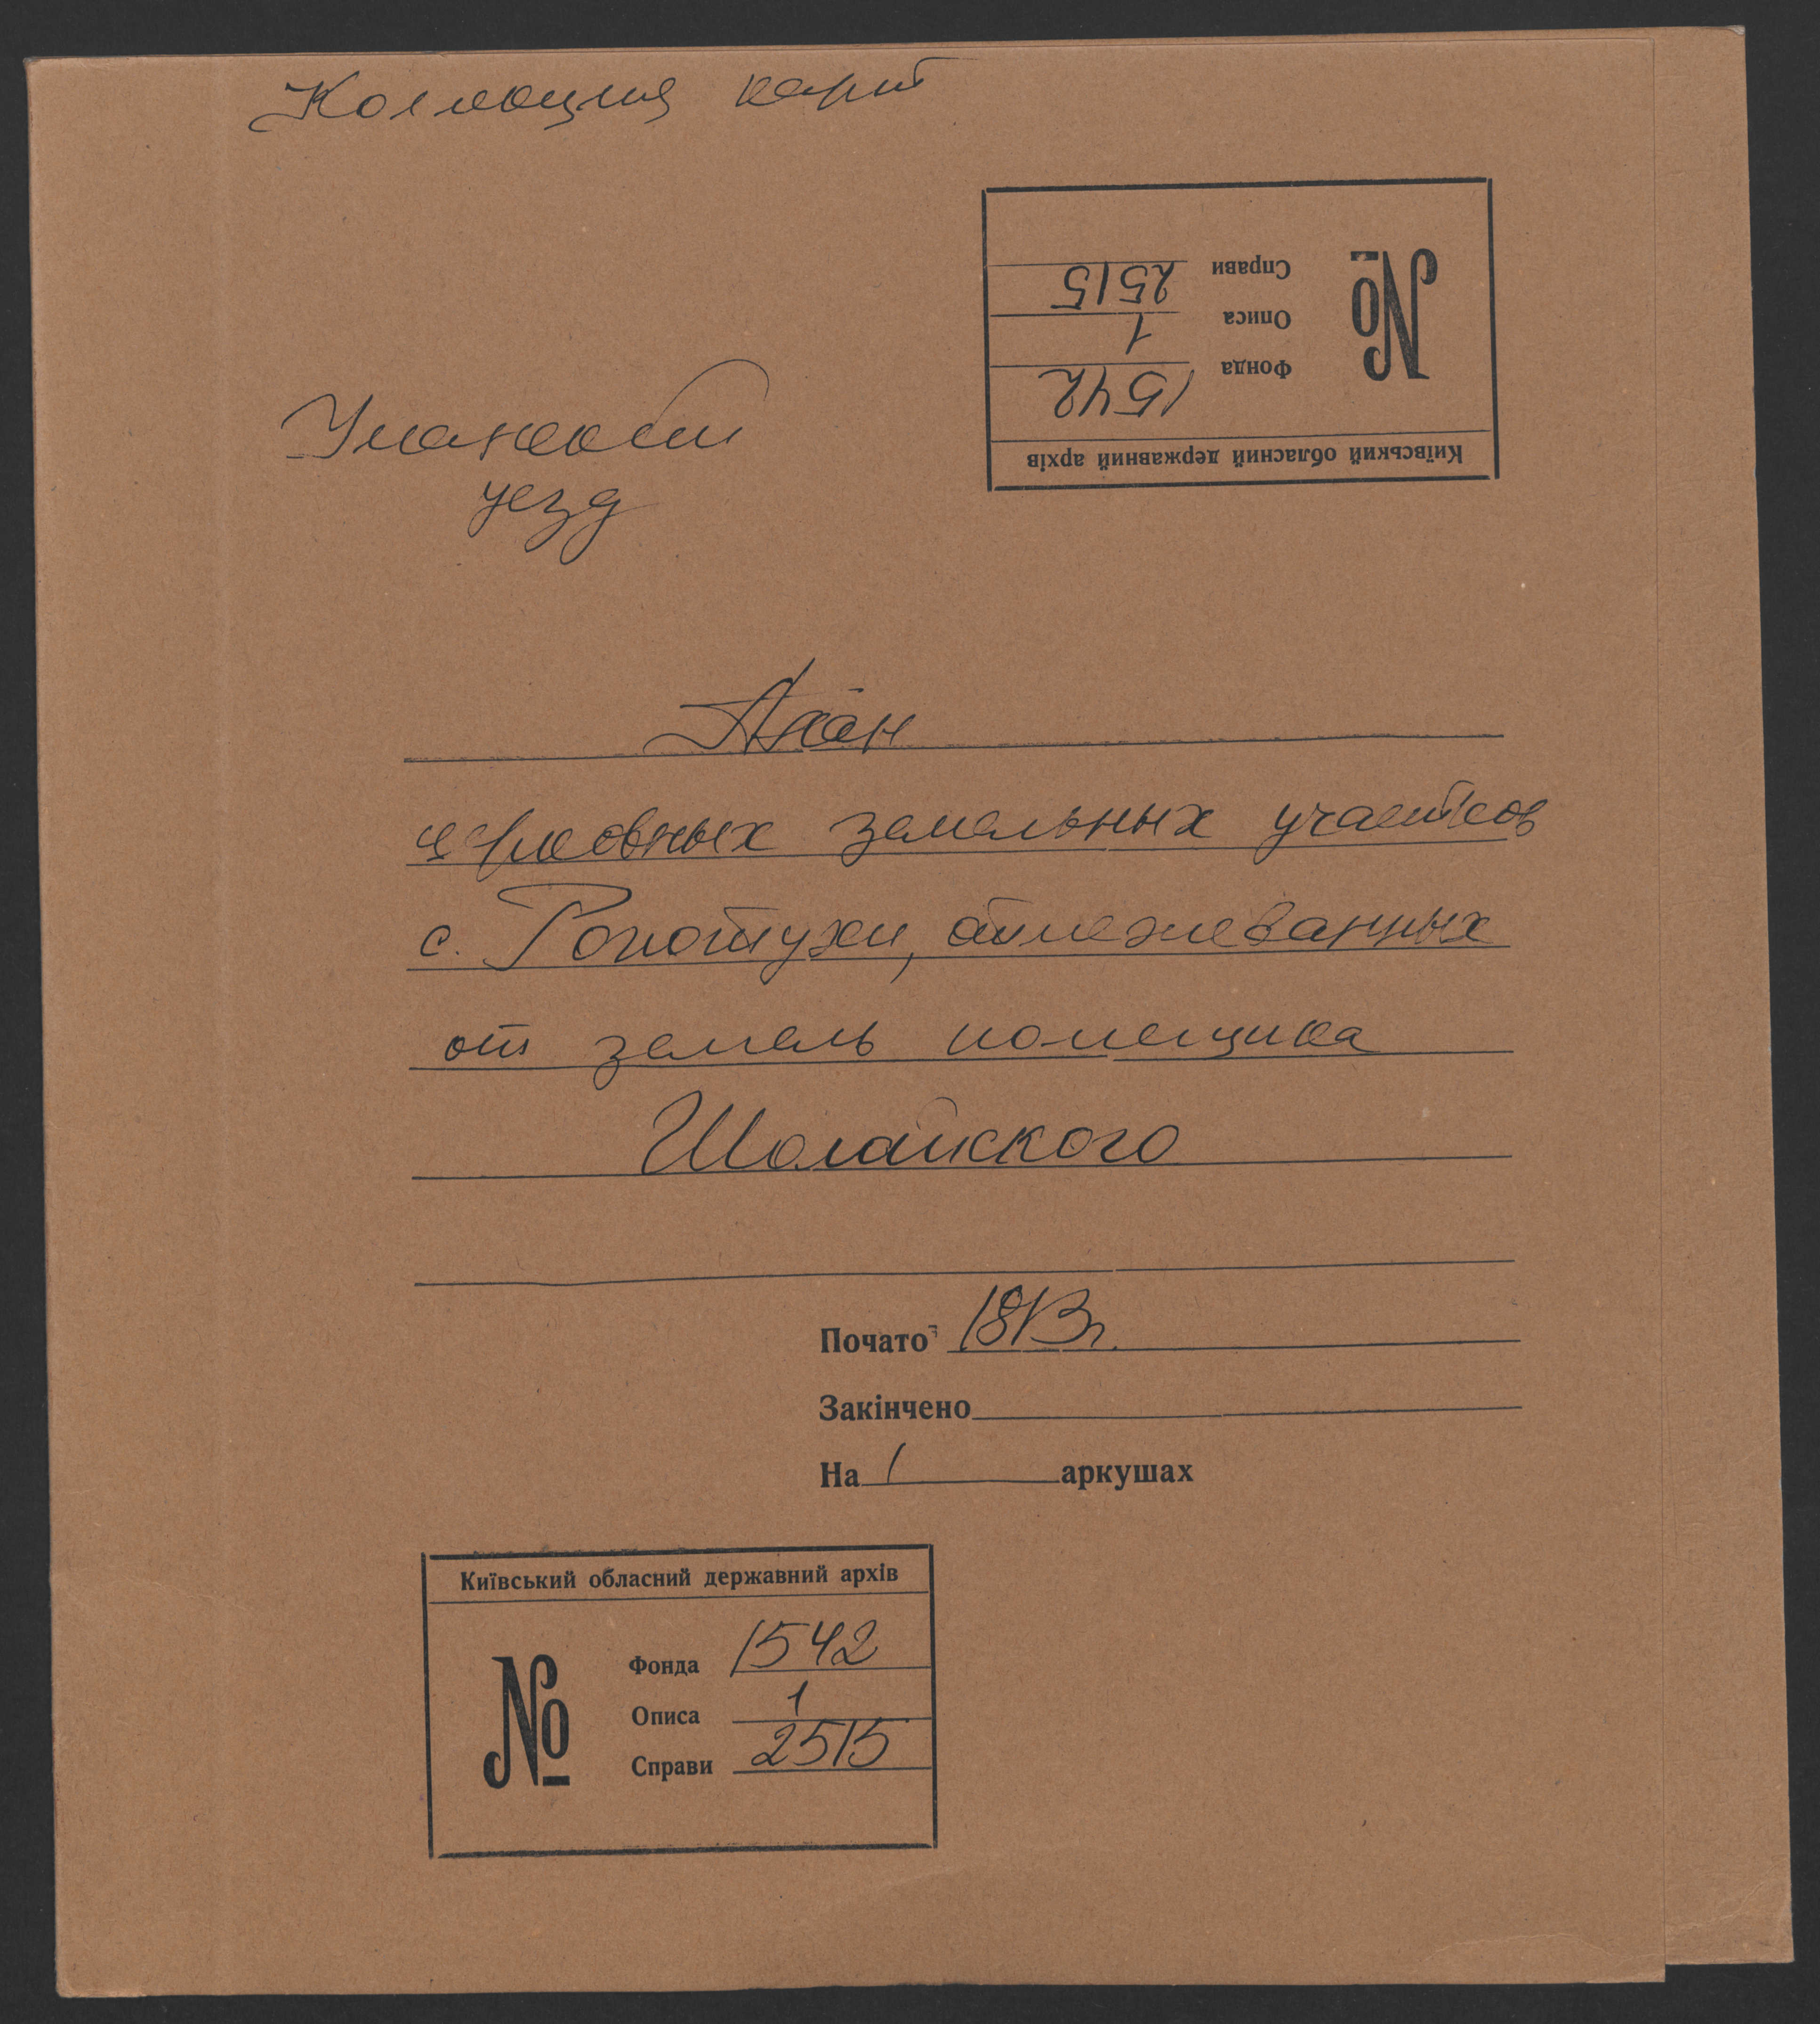 Коллекция карт
Справи 2515
Описа 1
Фонда 1542
№
Київський обласний державний архів
Уманский
уезд
План
церковных земельных участков
с. Ропотухи, отмежеванных
от земель помещика
Шолайского
Почато 1813 г.
Закінчено
На 1 аркушах
Київський обласний державний архів
№
Фонда 1542
Описа 1
Справи 2515